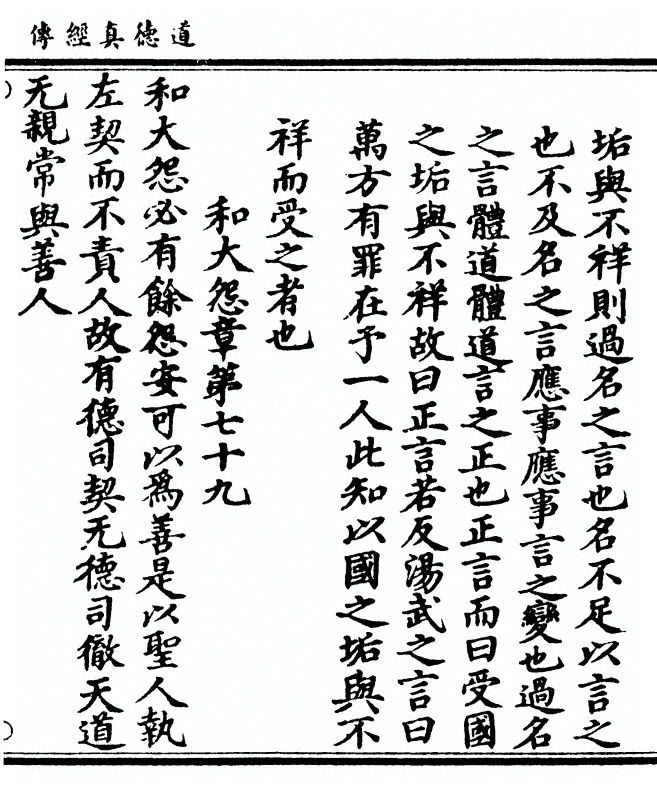 道德真經傳
垢與不祥則過名之言也名不足以言之
也不及名之言應事應事言之變也過名
之言體道體道言之正也正言而曰受國
之垢與不祥故曰正言若反湯武之言曰
萬方有罪在予一人此知以國之垢與不
祥而受之者也
和大怨章第七十九
和大怨必有餘怨安可以為善是以聖人執
左契而不責人故有德司契无德司徹天道
无親常與善人